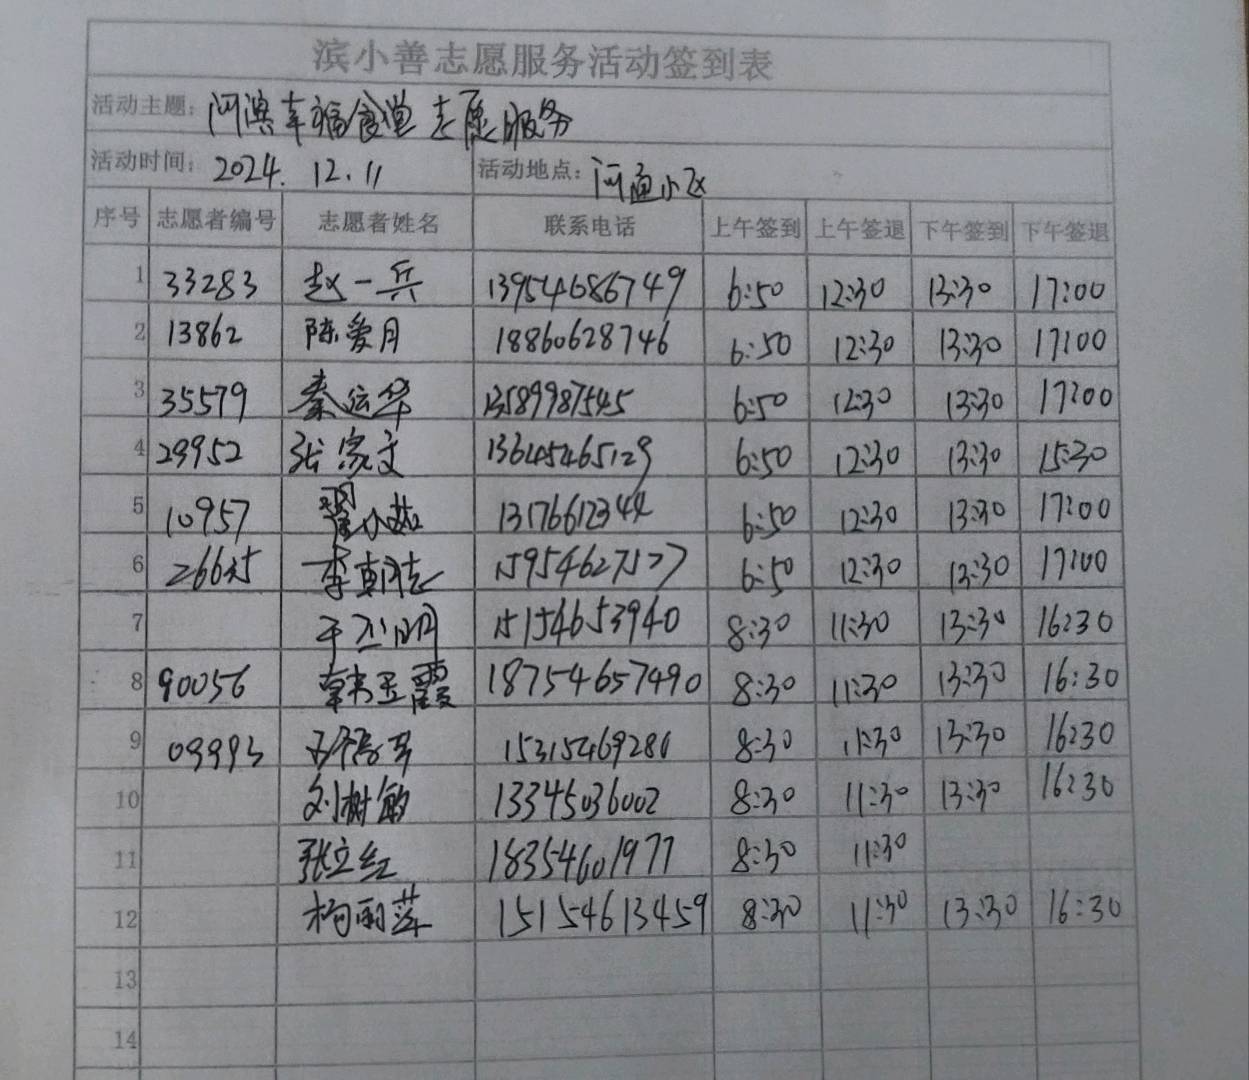 滨小善志愿服务活动签到表
活动主题: 河滨幸福食堂 志愿服务
活动时间: 2024. 12. 11 活动地点: 河通小区
序号 志愿者编号 志愿者姓名 联系电话 上午签到 上午签退 下午签到 下午签退
1 33283 赵一兵 13954686749 6:50 12:30 13:30 17:00
2 13862 陈爱月 18860628746 6:50 12:30 13:30 17:00
3 35579 秦运华 13589987545 6:50 12:30 13:30 17:00
4 29952 张家文 13645465129 6:50 12:30 13:30 15:30
5 10957 翟小茹 13176612344 6:50 12:30 13:30 17:00
6 李 15954627577 6:50 12:30 13:30 17:00
7 于 15154653940 8:30 11:30 13:30 16:30
8 90056 韩玉霞 18754657490 8:30 11:30 13:30 16:30
9 09993 15315469286 8:30 11:30 13:30 16:30
10 刘树敏 13345036002 8:30 11:30 13:30 16:30
11 张立红 18354601977 8:30 11:30
12 15154613459 8:30 11:30 13:30 16:30
13
14